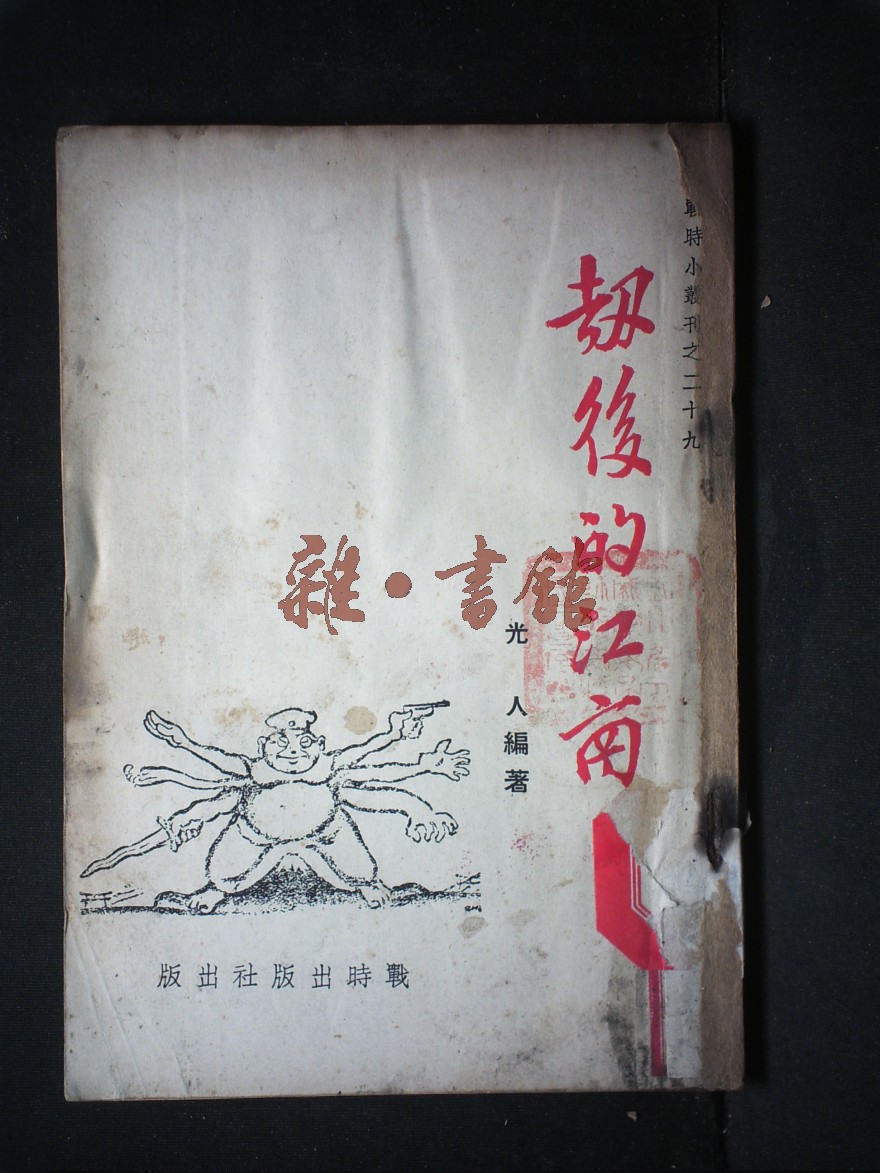 戰時小叢刊之二十九
劫後的江南
光人編著
雜·書館
戰時出版社出版